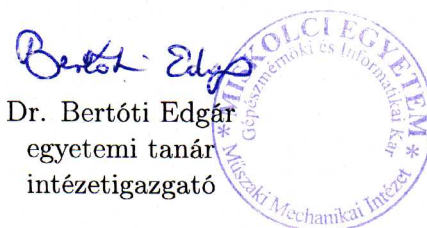 Bertóti Edgár
Dr. Bertóti Edgár
egyetemi tanár
intézetigazgató
* MISKOLCI EGYETEM *
Gépészmérnöki és Informatikai Kar
Műszaki Mechanikai Intézet